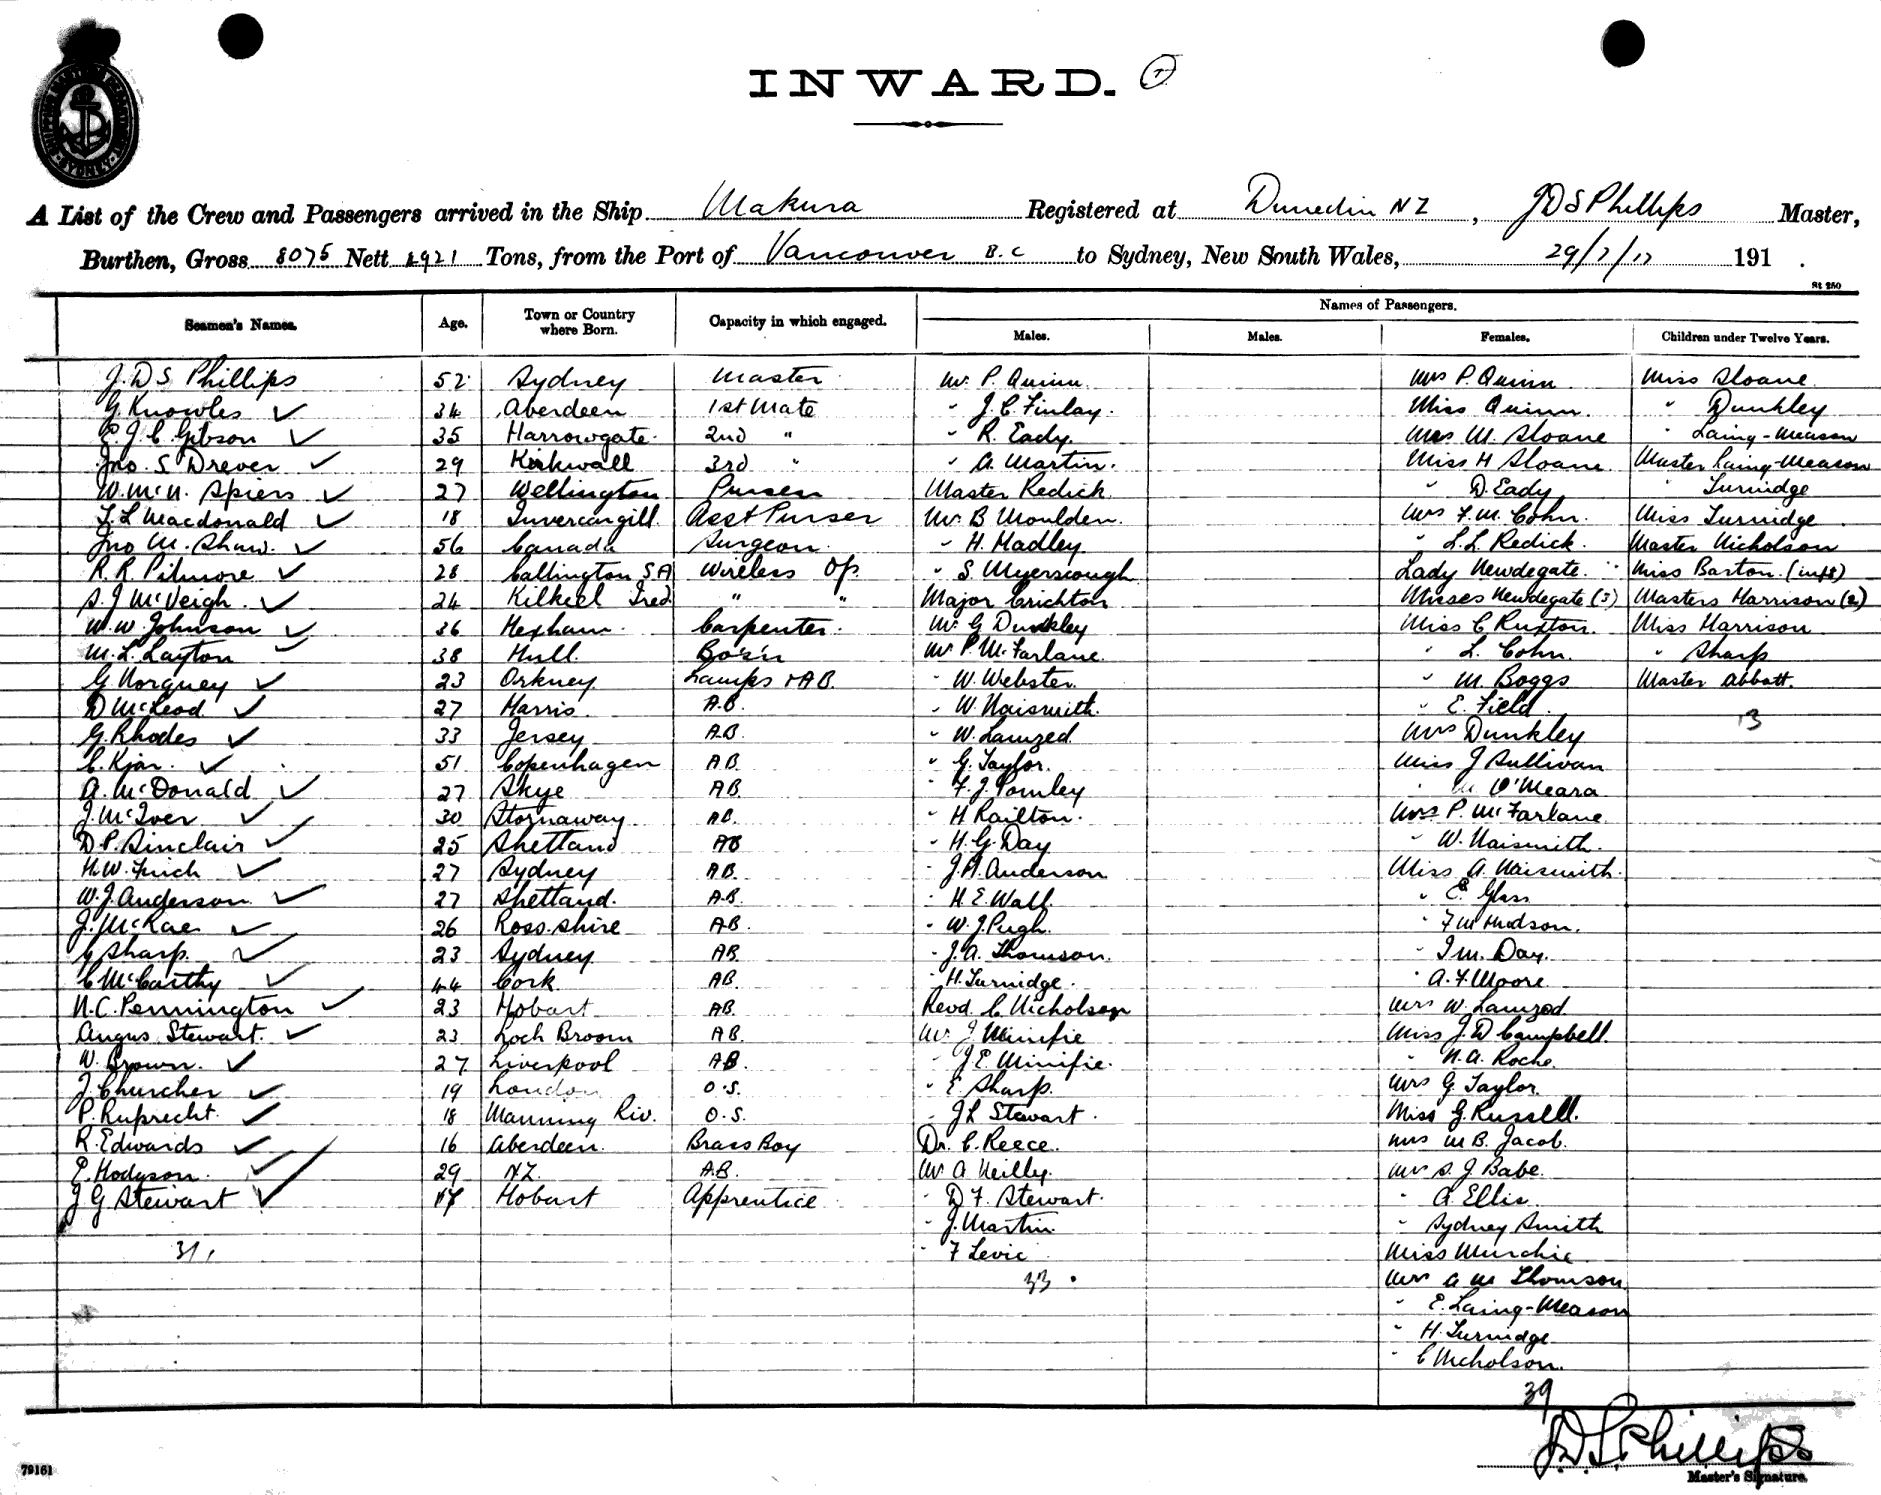 INWARD.
A List of the Crew and Passengers arrived in the Ship Makura Registered at Dunedin NZ, JDS Phillips Master,
Burthen, Gross 8075 Nett 4921 Tons, from the Port of Vancouver B.C to Sydney, New South Wales, 29/7/17 191 .
St 250
Names of Passengers.
Seamen's Names. Age. Town or Country where Born. Capacity in which engaged. Males. Males. Females. Children under Twelve Years.
J.D S Phillips 52 Sydney Master Mr. P. Quinn Mrs P. Quinn Miss Sloane
G. Knowles ✓ 34 Aberdeen 1st Mate " J. C. Finlay. Miss Quinn. " Dunkley
E. J. C. Gibson ✓ 35 Harrowgate 2nd " " R. Eady. Mrs M. Sloane " Laing-Meason
Jno. S Drever ✓ 29 Kirkwall 3rd " " A. Martin. Miss H Sloane Master Laing-Meason
W. McN. Spiers ✓ 27 Wellington Purser Master Redick " D. Eady " Turnidge
L. L Macdonald ✓ 18 Invercargill Asst Purser Mr. B Moulden. Mrs F. M. Cohn. Miss Turnidge
Jno M. Shaw. ✓ 56 Canada Surgeon. " H. Hadley " L. L Redick. Master Nicholson
R. R. Pilmore ✓ 28 Callington S.A Wireless Op " S. Myerscough Lady Newdegate. Miss Barton. (inft)
S. J McVeigh. ✓ 24 Kilkeel Ired. " " Major Crichton Misses Newdegate (3) Masters Harrison (2)
W. W. Johnson ✓ 36 Hexham. Carpenter. Mr G Dunkley Miss C Ruxton. Miss Harrison
M. L. Layton ✓ 38 Hull. Bo's'n Mr P. McFarlane. " L. Cohn. " Sharp
G Norquey ✓ 23 Orkney Lamps & AB. " W. Webster. " M. Boggs Master Abbott.
D McLeod ✓ 27 Harris. A.B. " W. Naismith. " E. Field 13
G. Rhodes ✓ 33 Jersey A.B " W. Lamzed Mrs Dunkley
C. Kjar. ✓ 51 Copenhagen AB. " G. Taylor. Miss J Sullivan
A. McDonald ✓ 27 Skye AB. " F. J. Pomley " M O'Meara
J. McIver ✓ 30 Stornaway AB. " H Railton. Mrs P. McFarlane
D. P. Sinclair ✓ 25 Shetland AB " H. G. Day " W. Naismith.
H. W. Finch ✓ 27 Sydney AB. " J. H. Anderson Miss A. Naismith.
W. J. Anderson ✓ 27 Shetland. A.B. " H. E. Wall. " E. Glass
J. McRae ✓ 26 Ross.shire AB. " W. J. Pugh. " F M Hudson.
C Sharp. ✓ 23 Sydney AB. " J. A. Thomson. " I M. Day.
C McCarthy ✓ 44 Cork AB. " H. Turnidge. " A. F. Moore
N. C. Pennington ✓ 23 Hobart AB. Revd C Nicholson Mrs W. Lamzed
Angus Stewart. ✓ 23 Loch Broom AB. Mr. J Minifie Miss J. D Campbell.
W. Brown. ✓ 27 Liverpool AB. " J. E. Minifie. " N. A. Roche.
J. Churcher ✓ 19 London O.S. " E Sharp. Mrs G. Taylor.
P. Ruprecht. ✓ 18 Manning Riv. O.S. " J L Stewart. Miss G. Russell.
R. Edwards ✓ 16 Aberdeen. Brass Boy Dr. C. Reece. Mrs M B. Jacob.
E. Hodgson. ✓ 29 NZ. A.B. Mr A Neilly. Mrs S. J Babe.
J G Stewart ✓ 17 Hobart Apprentice " D F. Stewart. " A. Ellis
" J. Martin. " Sydney Smith
31 " F Levic Miss Murchie
33 Mrs A M Thomson
" E. Laing-Meason
" H. Turnidge
" C Nicholson.
39
J.D.S. Phillips
Master's Signature.
79161